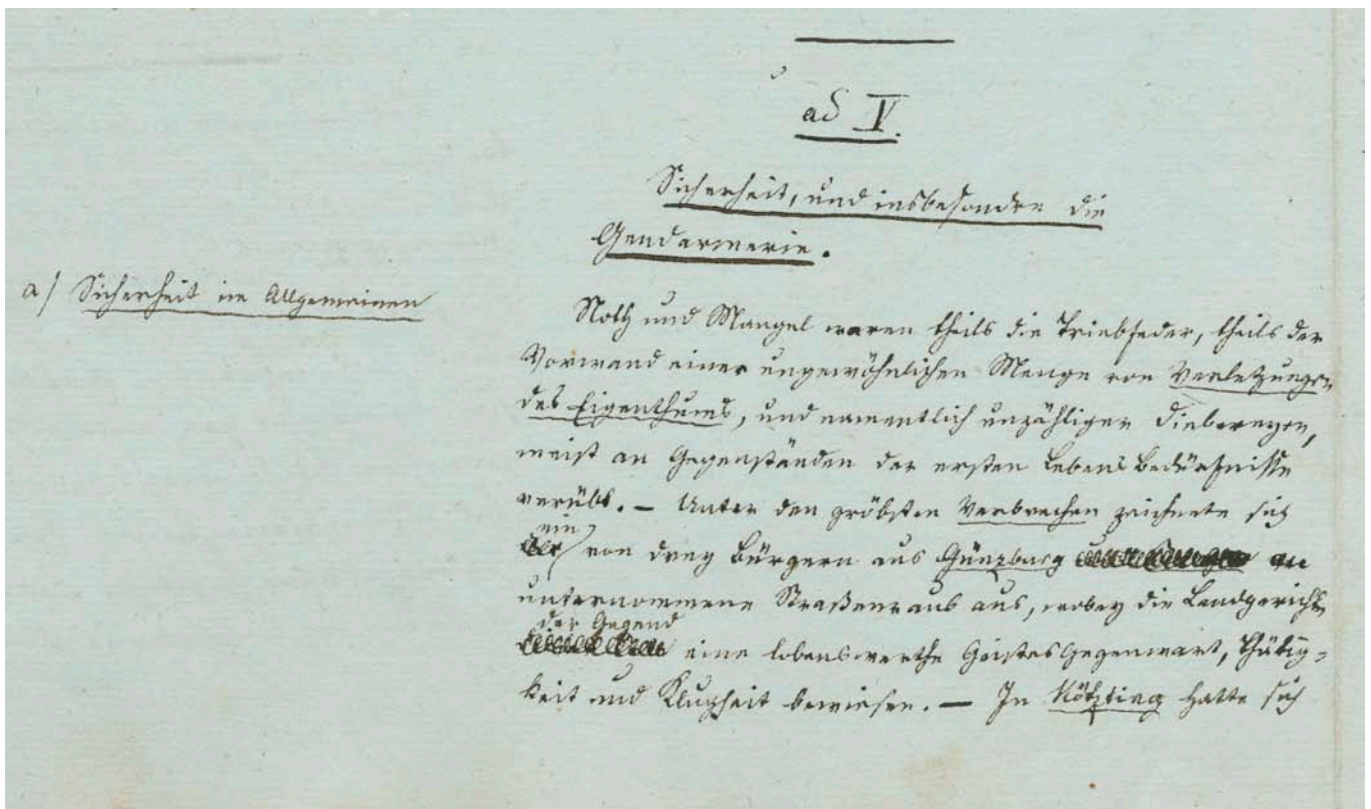 ad V.
Sicherheit, und insbesondre die
Gendarmerie.
a/ Sicherheit im Allgemeinen
Noth und Mangel waren theils die Triebfeder, theils der
Vorwand einer ungewöhnlichen Menge von Verletzungen
des Eigenthums, und namentlich unzähliger Diebereyen,
meist an Gegenständen der ersten Lebensbedürfnisse
verübt. — Unter den gröbsten Verbrechen zeichnete sich
ein
von drey Bürgern aus Günzburg
unternommene Straßenraub aus, wobey die Landgerichte
der Gegend
eine lobenswerthe Geistesgegenwart, Thätig-
keit und Klugheit bewiesen. — In Kötzting hatte sich